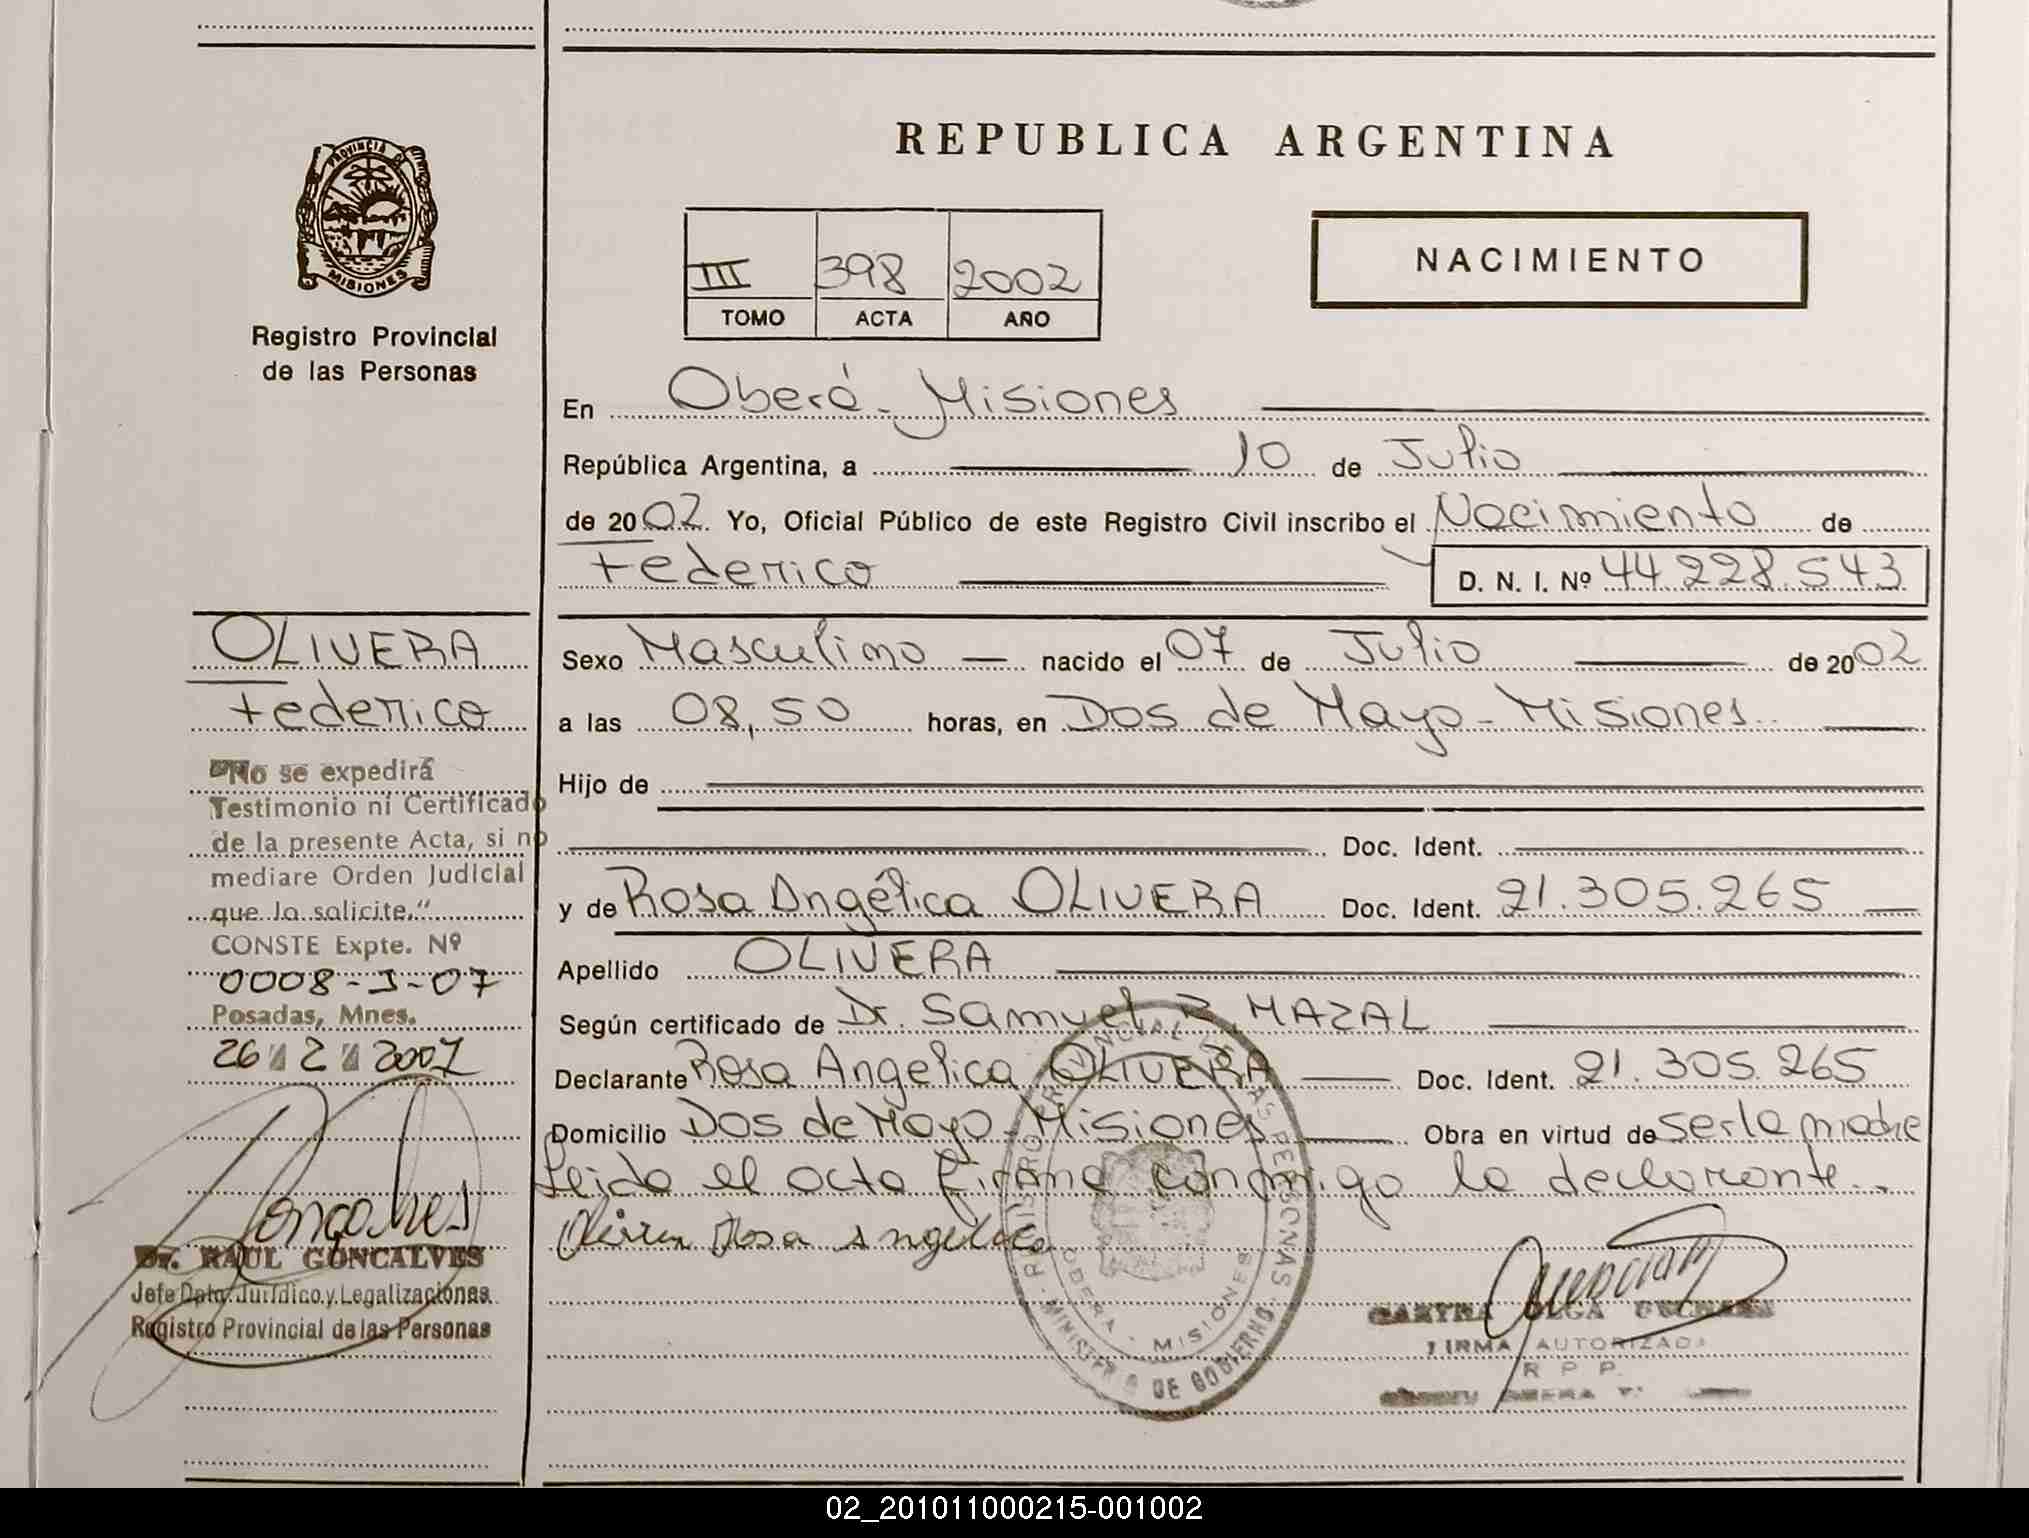 REPUBLICA ARGENTINA
PROVINCIA DE
MISIONES
Registro Provincial
de las Personas
III 398 2002
TOMO ACTA AÑO
NACIMIENTO
En Oberá - Misiones
República Argentina, a 10 de Julio
de 2002. Yo, Oficial Público de este Registro Civil inscribo el Nacimiento de
Federico
D. N. I. Nº 44.228.543
OLIVERA
Federico
"No se expedirá
Testimonio ni Certificado
de la presente Acta, si no
mediare Orden Judicial
que lo solicite."
CONSTE Expte. Nº
0008-J-07
Posadas, Mnes.
26 2 2007
Goncalves
Dr. RAUL GONCALVES
Jefe Dpto. Jurídico y Legalizaciones
Registro Provincial de las Personas
Sexo Masculino nacido el 07 de Julio de 2002
a las 08,50 horas, en Dos de Mayo - Misiones.
Hijo de
Doc. Ident.
y de Rosa Angélica OLIVERA Doc. Ident. 21.305.265
Apellido OLIVERA
Según certificado de Dr. Samuel R. MAZAL
Declarante Rosa Angelica OLIVERA Doc. Ident. 21.305.265
Domicilio Dos de Mayo - Misiones Obra en virtud de ser la madre
Leida el acta firma conmigo la declarante..
Olivera Rosa Angelica
REGISTRO PROVINCIAL DE LAS PERSONAS
MINISTERIO DE GOBIERNO
OBERA - MISIONES
OLGA
FIRMA AUTORIZADA
R P P
02_201011000215-001002